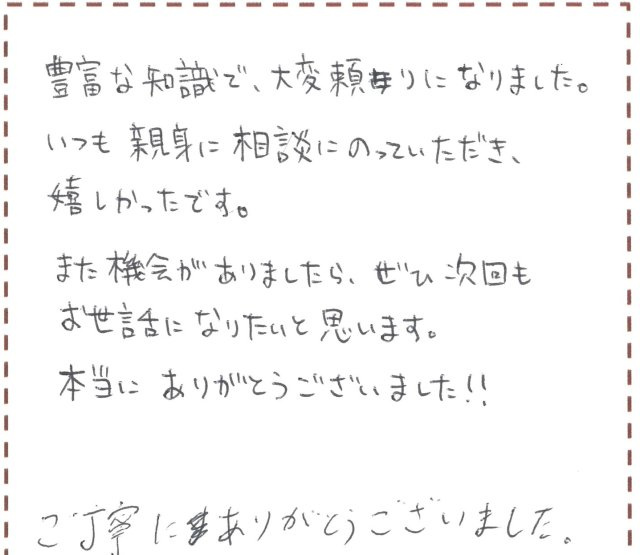 豊富な知識で、大変頼りになりました。
いつも親身に相談にのっていただき、
嬉しかったです。
また機会がありましたら、ぜひ次回も
お世話になりたいと思います。
本当にありがとうございました!!
ご丁寧にありがとうございました。